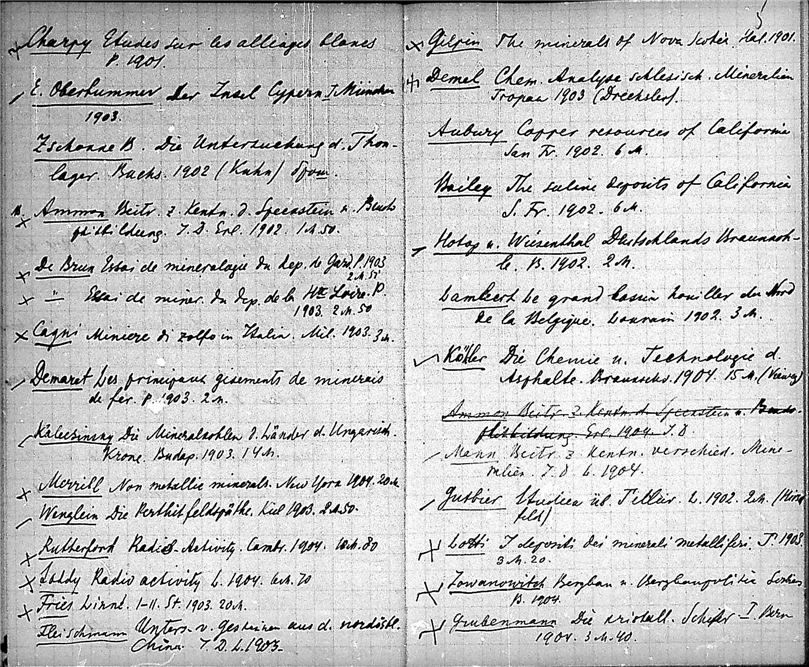 Charpy Etudes sur les alliages blancs
P. 1901.
E. Oberhummer Der Insel Cypern I München
1903.
Zschokke B. Die Untersuchung d. Thon-
lager. Buchs. 1902 (Kuhn)
Ammon Beitr. z. Kentn. d. Speckstein u.
bildung. I. D. Erl. 1902. 1 M. 50.
De Brun Essai de mineralogie du dep. de Gard P. 1903
2 M. 50
- " - Essai de miner. du dep. de la Hte Loire. P.
1903. 2 M. 50
Cagni Miniere di zolfo in Italia. Mil. 1903. 3 M.
Demaret Les principaux gisements de minerais
de fer. P. 1903. 2 M.
Kalecsinszky Die Mineralkohlen d. Länder d. Ungarisch.
Krone. Budap. 1903. 14 M.
Merrill Non metallic minerals. New York 1904. 20 M.
Wenglein Die Perthitfeldspäthe. Kiel 1903. 2 M. 50.
Rutherford Radio-Activity. Cambr. 1904. 10 M. 80
Soddy Radio activity L. 1904. 6 M. 70
Fries Linné. I-II. St. 1903. 20 M.
Fleischmann Unters. v. Gesteinen aus d. nordöstl.
China I. D. L. 1903.
5
Gilpin The minerals of Nova Scotia. Hal. 1901.
Demel Chem. Analyse schlesisch. Mineralien
Tropau 1903 (Drechsler).
Aubury Copper resources of California
San Fr. 1902. 6 M.
Bailey The saline deposits of California
S. Fr. 1902. 6 M.
u. Wiesenthal Deutschlands Braunkoh-
le. B. 1902. 2 M.
Lambert Le grand bassin houiller du Nord
de la Belgique. Louvain 1902. 3 M.
Köhler Die Chemie u. Technologie d.
Asphalte. Braunschw. 1904. 15 M. (Vieweg)
Ammon Beitr. z. Kentn. d. Speckstein u.
bildung. Erl. 1904. I. D
Mann Beitr. z. Kentn. verschied. Mine-
ralien. I. D. L. 1904.
Gutbier Studien üb. Tellur. L. 1902. 2 M. (Hirsch
feld)
Lotti I depositi dei minerali metalliferi. T. 1903
3 M. 20.
Iowanowitch Bergbau u. Bergbaupolitik Serbiens
B. 1904.
Grubenmann Die kristall. Schiefer I. Bern
1904. 3 M. 40.